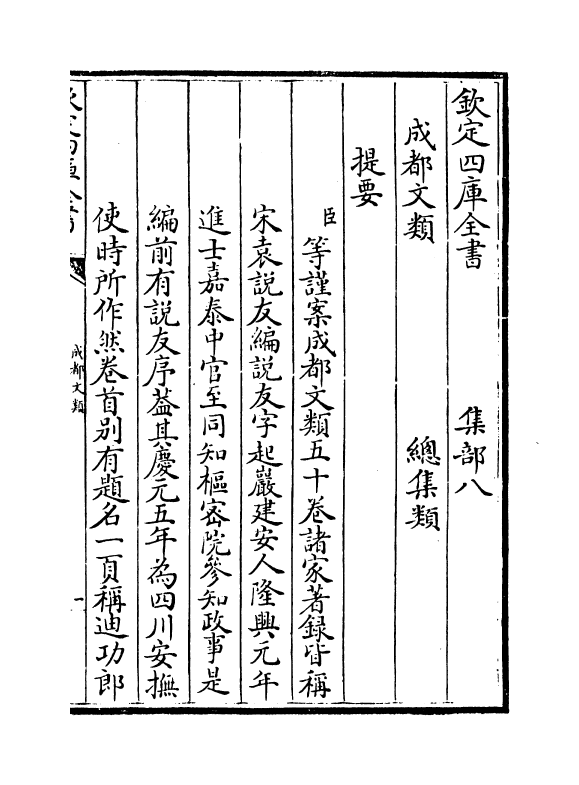 欽定四庫全書 集部八
成都文類 總集類
提要
臣等謹案成都文類五十卷諸家著録皆稱
宋袁説友編説友字起巖建安人隆興元年
進士嘉泰中官至同知樞密院參知政事是
編前有説友序葢其慶元五年為四川安撫
使時所作然卷首别有題名一頁稱迪功郎
成都文類
一